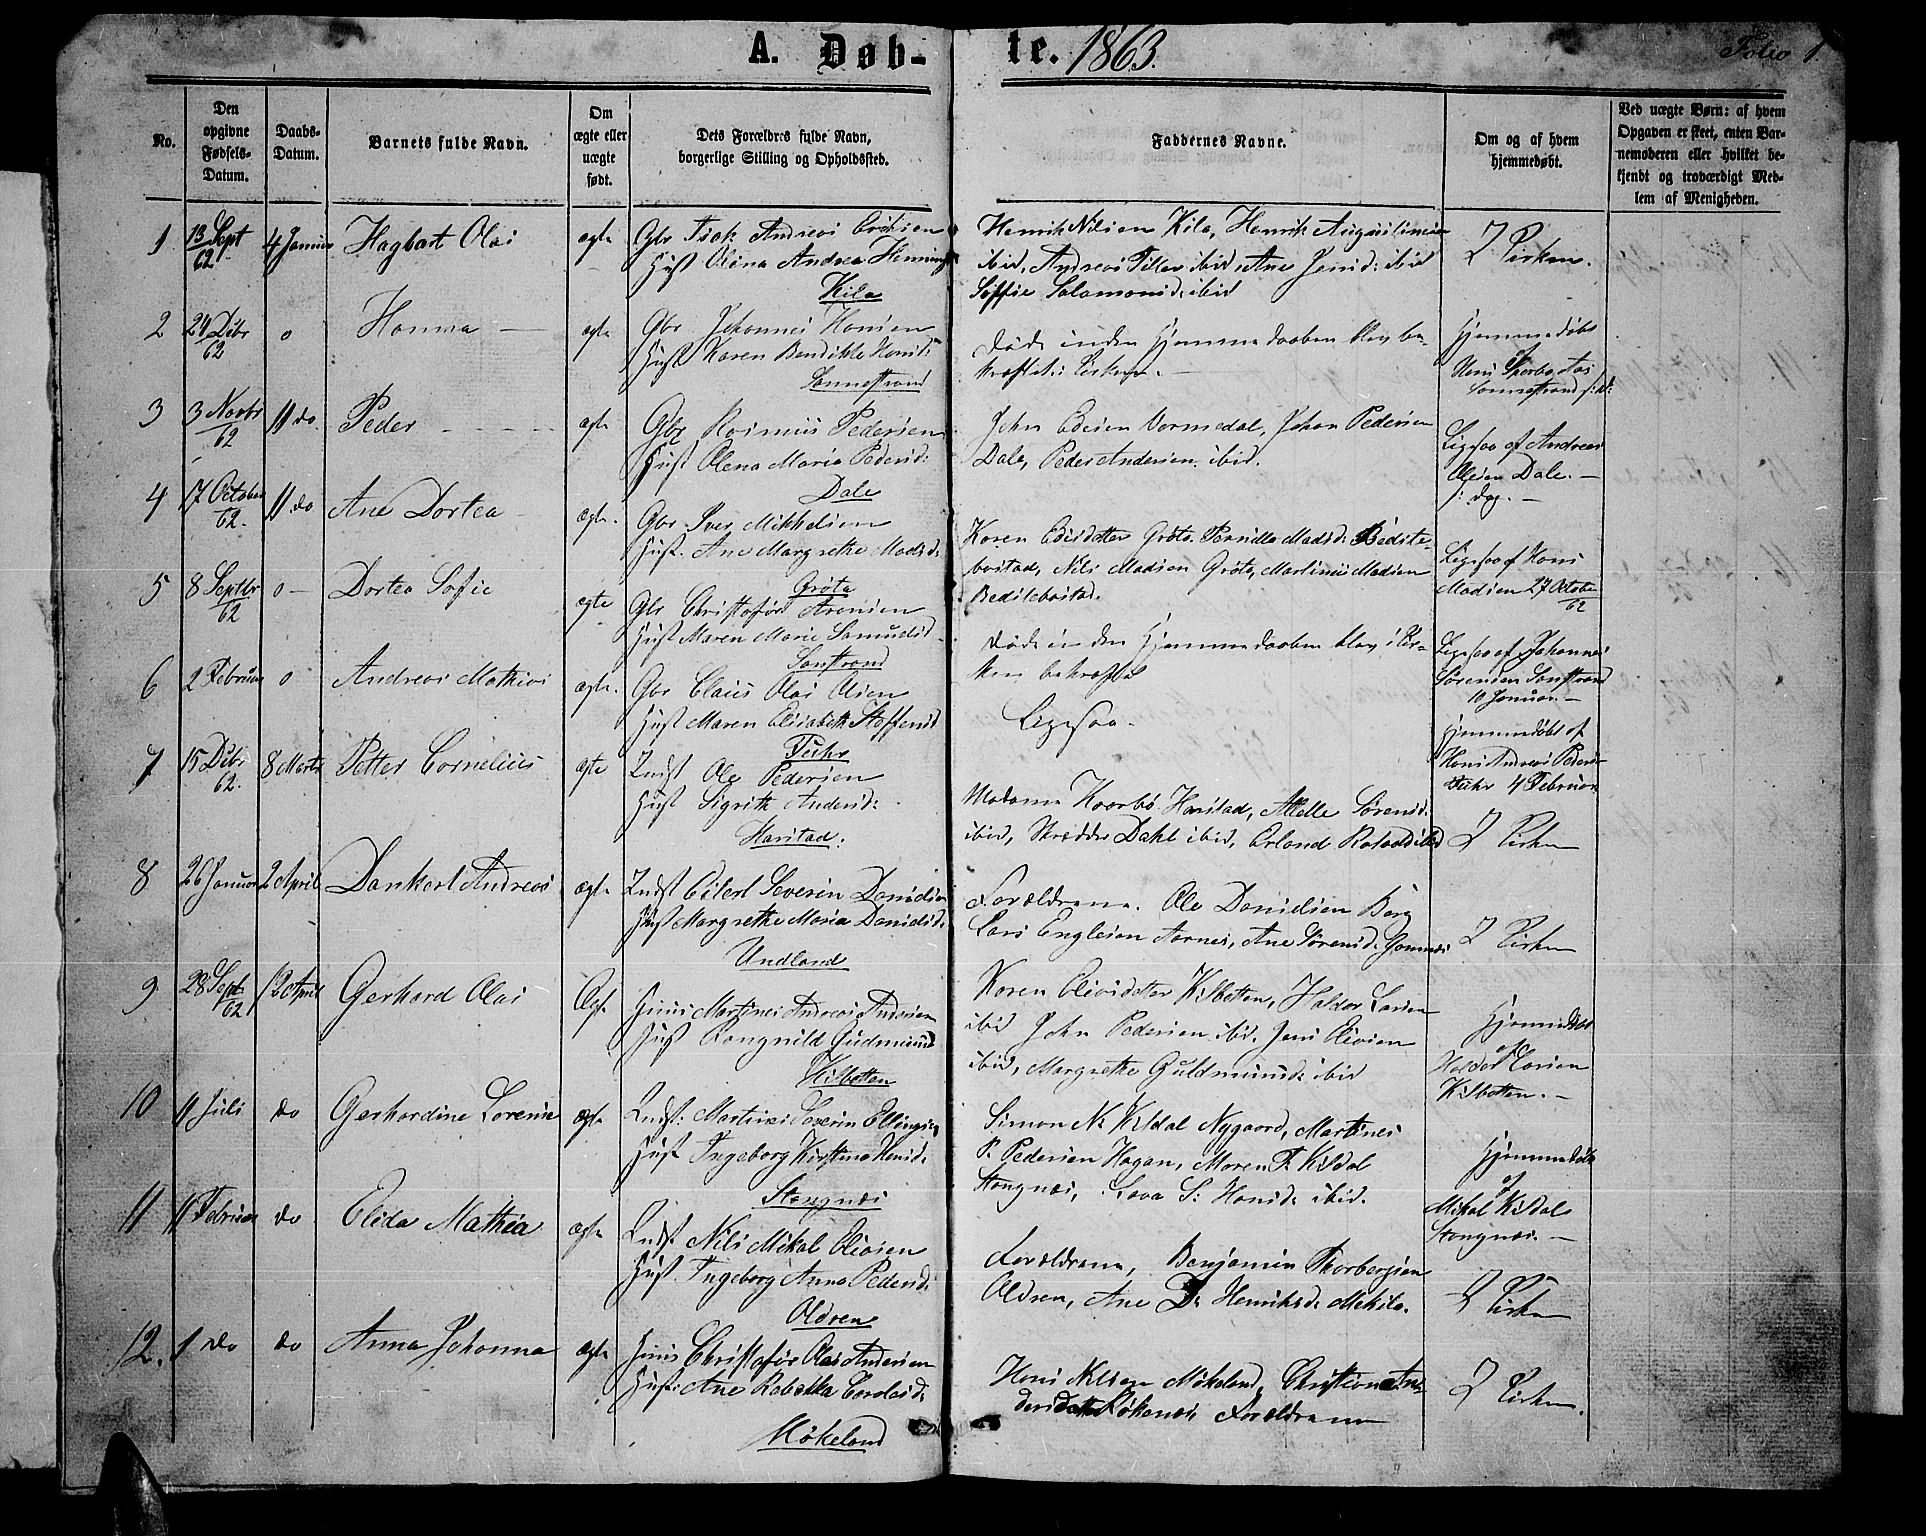 A. Døb-
te. 1863.
Folio 1.
No.
Den opgivne Fødsels-Datum.
Daabs-Datum.
Barnets fulde Navn.
Om ægte eller uægte født.
Dets Forældres fulde Navn, borgerlige Stilling og Opholdssted.
Faddernes Navne.
Om og af hvem hjemmedøbt.
Ved uægte Børn: af hvem
Opgaven er skeet, enten Bar-
nemoderen eller hvilket be-
kjendt og troværdigt Med-
lem af Menigheden.
1 13 Sept 62 4 Januar Hagbart Olai ægte Gbr Isak Andreas Eriksen
Hust Olina Andrea Henningsd
Kila
Henrik Nilsen Kila, Henrik Augustinus
ibid, Andreas Tiller ibid, Ane Jensd: ibid
Soffie Salamonsd: ibid
I Kirken.
2 24 Dcbr 62 o Hanna — ægte Gbr Johannes Hansen
Hust Karen Bendikte Hansd:
Sannestrand
Døde inden Hjemmedaaben blev be-
kræftet i Kirken. —
Hjemmedøbt
af
Hans
Sannestrand
3 3 Novbr 62 11 do Peder ægte Gbr Rasmus Pedersen
Hust Olena Maria Pedersd:
Dale
John Edisen Vormedal, Johan Pedersen
Dale, Peder Andersen ibid.
Ligesaa af Andreas
Olsen Dale. —
s: Dag. —
4 17 October 62. 11 do Ane Dortea ægte. Gbr Iver Mikkelsen
Hust. Ane Margrethe Madsd:
Grøta
Karen Edisdatter Grøta. Pernille Madsd: Bedste-
bostad, Nils Madsen Grøta, Martinus Madsen
Bedstebostad.
Ligesaa af Hans
Madsen 27 October
62
5 8 Septbr 62 o — Dortea Sofie ægte Gbr Christoffer Arensen
Hust Maren Marie Samuelsd:
Sanstrand
Døde inden Hjemmedaaben blev i Kir-
ken bekræftet
Ligesaa af Johannes
Sørensen Sanstrand
10 Januar. —
6 2 Februar o Andreas Mathias ægte. Gbr Claus Olai Olsen
Hust Maren Elisabeth Stoffersd
Fuhr
Ligesaa.
Hjemmedøbt af
Hans Andreas Peders-
Fuhr 4 Februar
7 15 Dcbr 62. 8 Marts Petter Cornelius ægte Indst Ole Pedersen
Hust Sigrith Andersd:
Harstad.
Madame Kaarbø Harstad, Atelle Sørensd:
ibid, Skrædder Dahl ibid, Erland ibid
I Kirken
8 26 Januar 2 April Dankert Andreas ægte Indst Eilert Severin Danielsen
Hust Margrethe Maria Danielsd:
Undland
Forældrene. Ole Danielsen Berg
Lars Englesen Aarnes, Ane Sørensd:
I Kirken
9. 28 Sept 62 12 April Gerhard Olai Ægt. Huus Martines Andreas Andersen
Hust Rangnild Gudmunds
Kilbotten
Karen Elisidatter Kilbotten, Haldor Larsen
ibid John Pedersen ibid. Jens Elisen
ibid, Margrethe Guldmunds: ibid
Hjemmedøbt
af
Haldor Larsen
Kilbotten. —
10 11 Juli do Gerhardine Lorense ægte Indst: Martines Severin Ellingsen
Hust Ingeborg Kirstina Hansd:
Stangnæs
Simon N. Kildal Nygaard, Martines
P. Pedersen Hagan, Maren P. Kildal
Stangnæs, Lava S: Hansd: ibid.
Hjemmedøbt
af
Mikal Kildal
Stangnæs. —
11 11 Februar do Elida Mathea ægte Indst Nils Mikal Elisen
Hust Ingeborg Anna Pedersd:
Aldren
Forældrene, Benjamin Thorbergsen
Aldren, Ane D. Henriksd: Mekila.
I Kirken
12. 1 do do Anna Johanna ægte Huus Christoffer Olai Andersen
Hust: Ane Rebekka Carolusd:
Møkeland
Hans Nilsen Møkeland, Christiane An-
dersdatter Røkenæs, Forældrene
I Kirken.